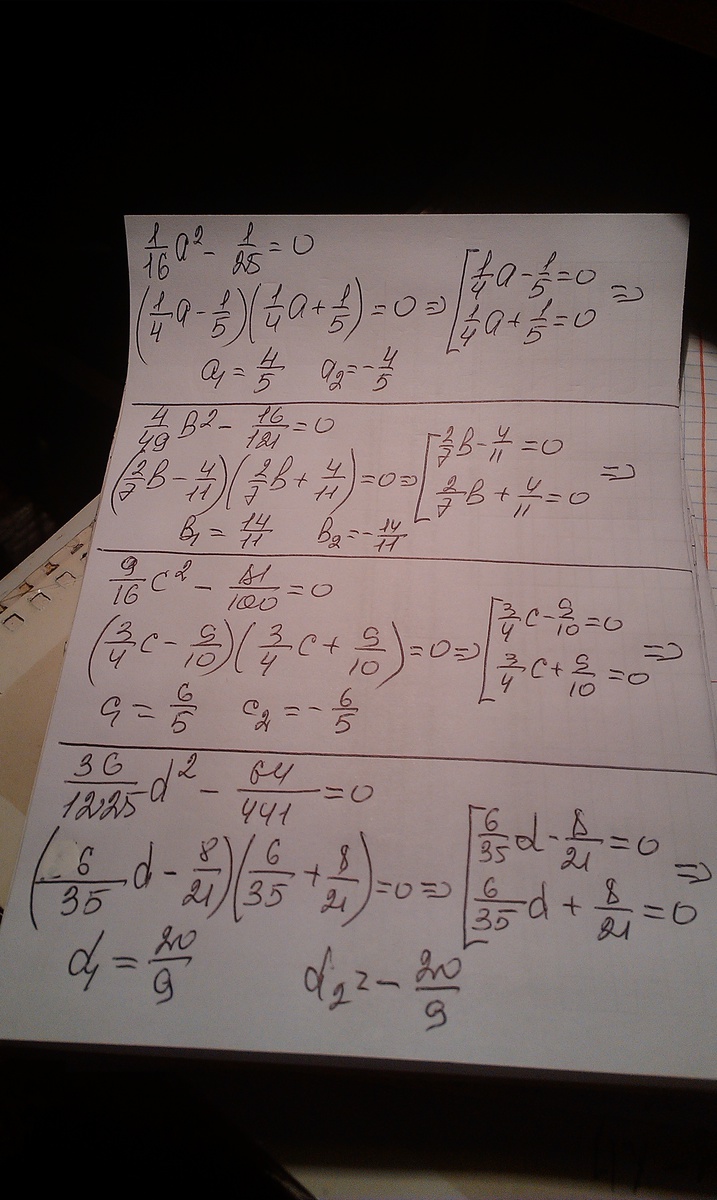 1/16 a² - 1/25 = 0
(1/4 a - 1/5)(1/4 a + 1/5) = 0 ⇒ [1/4 a - 1/5 = 0
1/4 a + 1/5 = 0 ⇒
a₁ = 4/5 a₂ = -4/5
4/49 B² - 16/121 = 0
(2/7 B - 4/11)(2/7 B + 4/11) = 0 ⇒ [2/7 B - 4/11 = 0
2/7 B + 4/11 = 0 ⇒
B₁ = 14/11 B₂ = -14/11
9/16 c² - 81/100 = 0
(3/4 c - 9/10)(3/4 c + 9/10) = 0 ⇒ [3/4 c - 9/10 = 0
3/4 c + 9/10 = 0 ⇒
c₁ = 6/5 c₂ = -6/5
36/1225 d² - 64/441 = 0
(6/35 d - 8/21)(6/35 + 8/21) = 0 ⇒ [6/35 d - 8/21 = 0
6/35 d + 8/21 = 0 ⇒
d₁ = 20/9 d₂ = -20/9